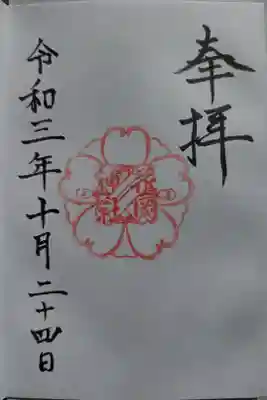 奉拝
令和三年十月二十四日